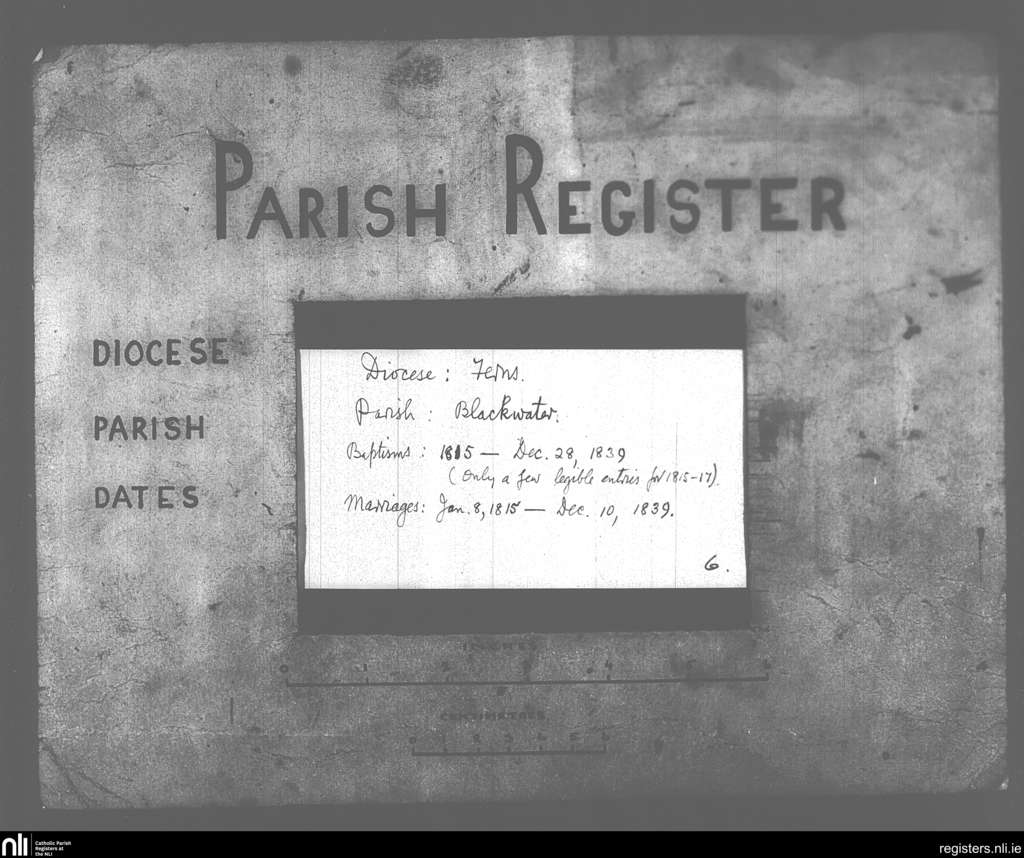 PARISH REGISTER
DIOCESE
PARISH
DATES
Diocese: Ferns.
Parish: Blackwater.
Baptisms: 1815 — Dec. 28, 1839
(Only a few legible entries for 1815-17).
Marriages: Jan. 8, 1815 — Dec. 10, 1839.
6.
INCHES
0 1 2 3 4 5 6
CENTIMETRES
nli
Catholic Parish
Registers at
the NLI
registers.nli.ie